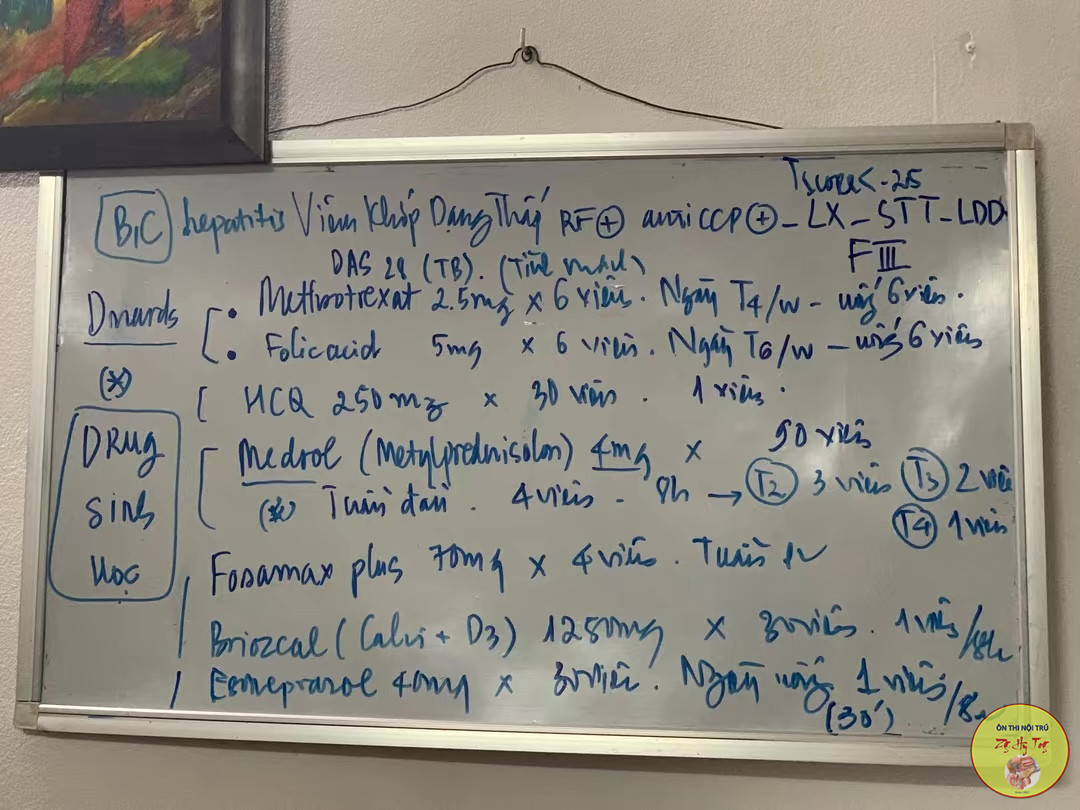 Tscore < -2.5
B,C hepatitis Viêm Khớp Dạng Thấp RF⊕ anti CCP⊕ - LX - STT - LDD
DAS 28 (TB).
F III
Dmards
• Methrotrexat 2.5mg x 6 viên. Ngày T4/w - uống 6 viên.
• Folic acid 5mg x 6 viên. Ngày T6/w - uống 6 viên
(*)
HCQ 250mg x 30 viên. 1 viên.
DRUG
sinh
học
Medrol (Metylprednisolon) 4mg x 50 viên
(*) Tuần đầu. 4 viên - 8h → T2 3 viên T3 2 viên
T4 1 viên
Fosamax plus 70mg x 4 viên. Tuần
Briozcal (Calci + D3) 1250mg x 30 viên. 1 viên/8h
Esomeprazol 40mg x 30 viên. Ngày uống 1 viên/8h
(30')
ÔN THI NỘI TRÚ